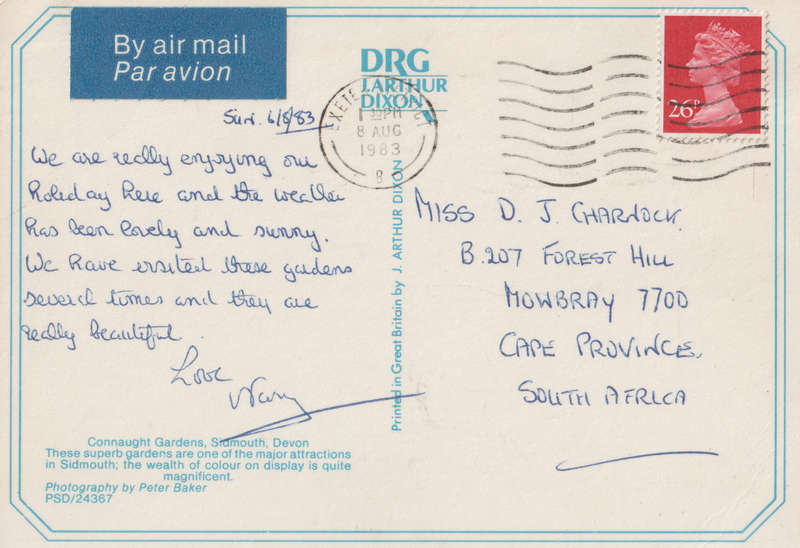 By air mail
Par avion
DRG
J. ARTHUR
DIXON
26P
EXETE
1 30PM
8 AUG
1983
8
Sun. 6/8/83
We are really enjoying our
holiday here and the weather
has been lovely and sunny.
We have visited these gardens
several times and they are
really beautiful.
Love
MISS D. J. CHARNOCK.
B.207 FOREST HILL
MOWBRAY 7700
CAPE PROVINCE.
SOUTH AFRICA
Printed in Great Britain by J. ARTHUR DIXON
Connaught Gardens, Sidmouth, Devon
These superb gardens are one of the major attractions
in Sidmouth; the wealth of colour on display is quite
magnificent.
Photography by Peter Baker
PSD/24367